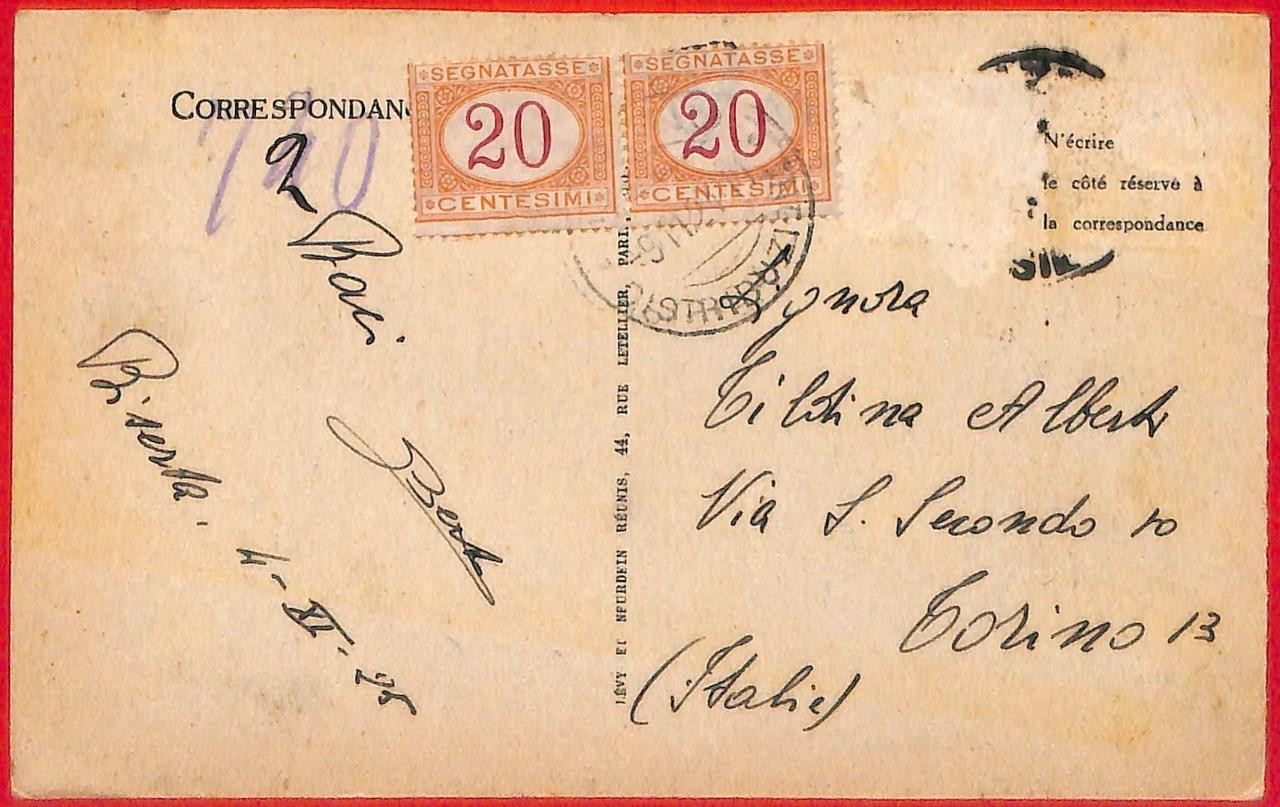 CORRESPONDAN
SEGNATASSE
20
CENTESIMI
SEGNATASSE
20
CENTESIMI
N'écrire
le côté réservé à
la correspondance
2 Baci
Berto
Biserta.
4-XI-25
LÉVY ET NEURDEIN RÉUNIS, 44, RUE LETELLIER, PARI
Signora
Tildina Alberti
Via S. Secondo 10
Torino 13
(Italie)